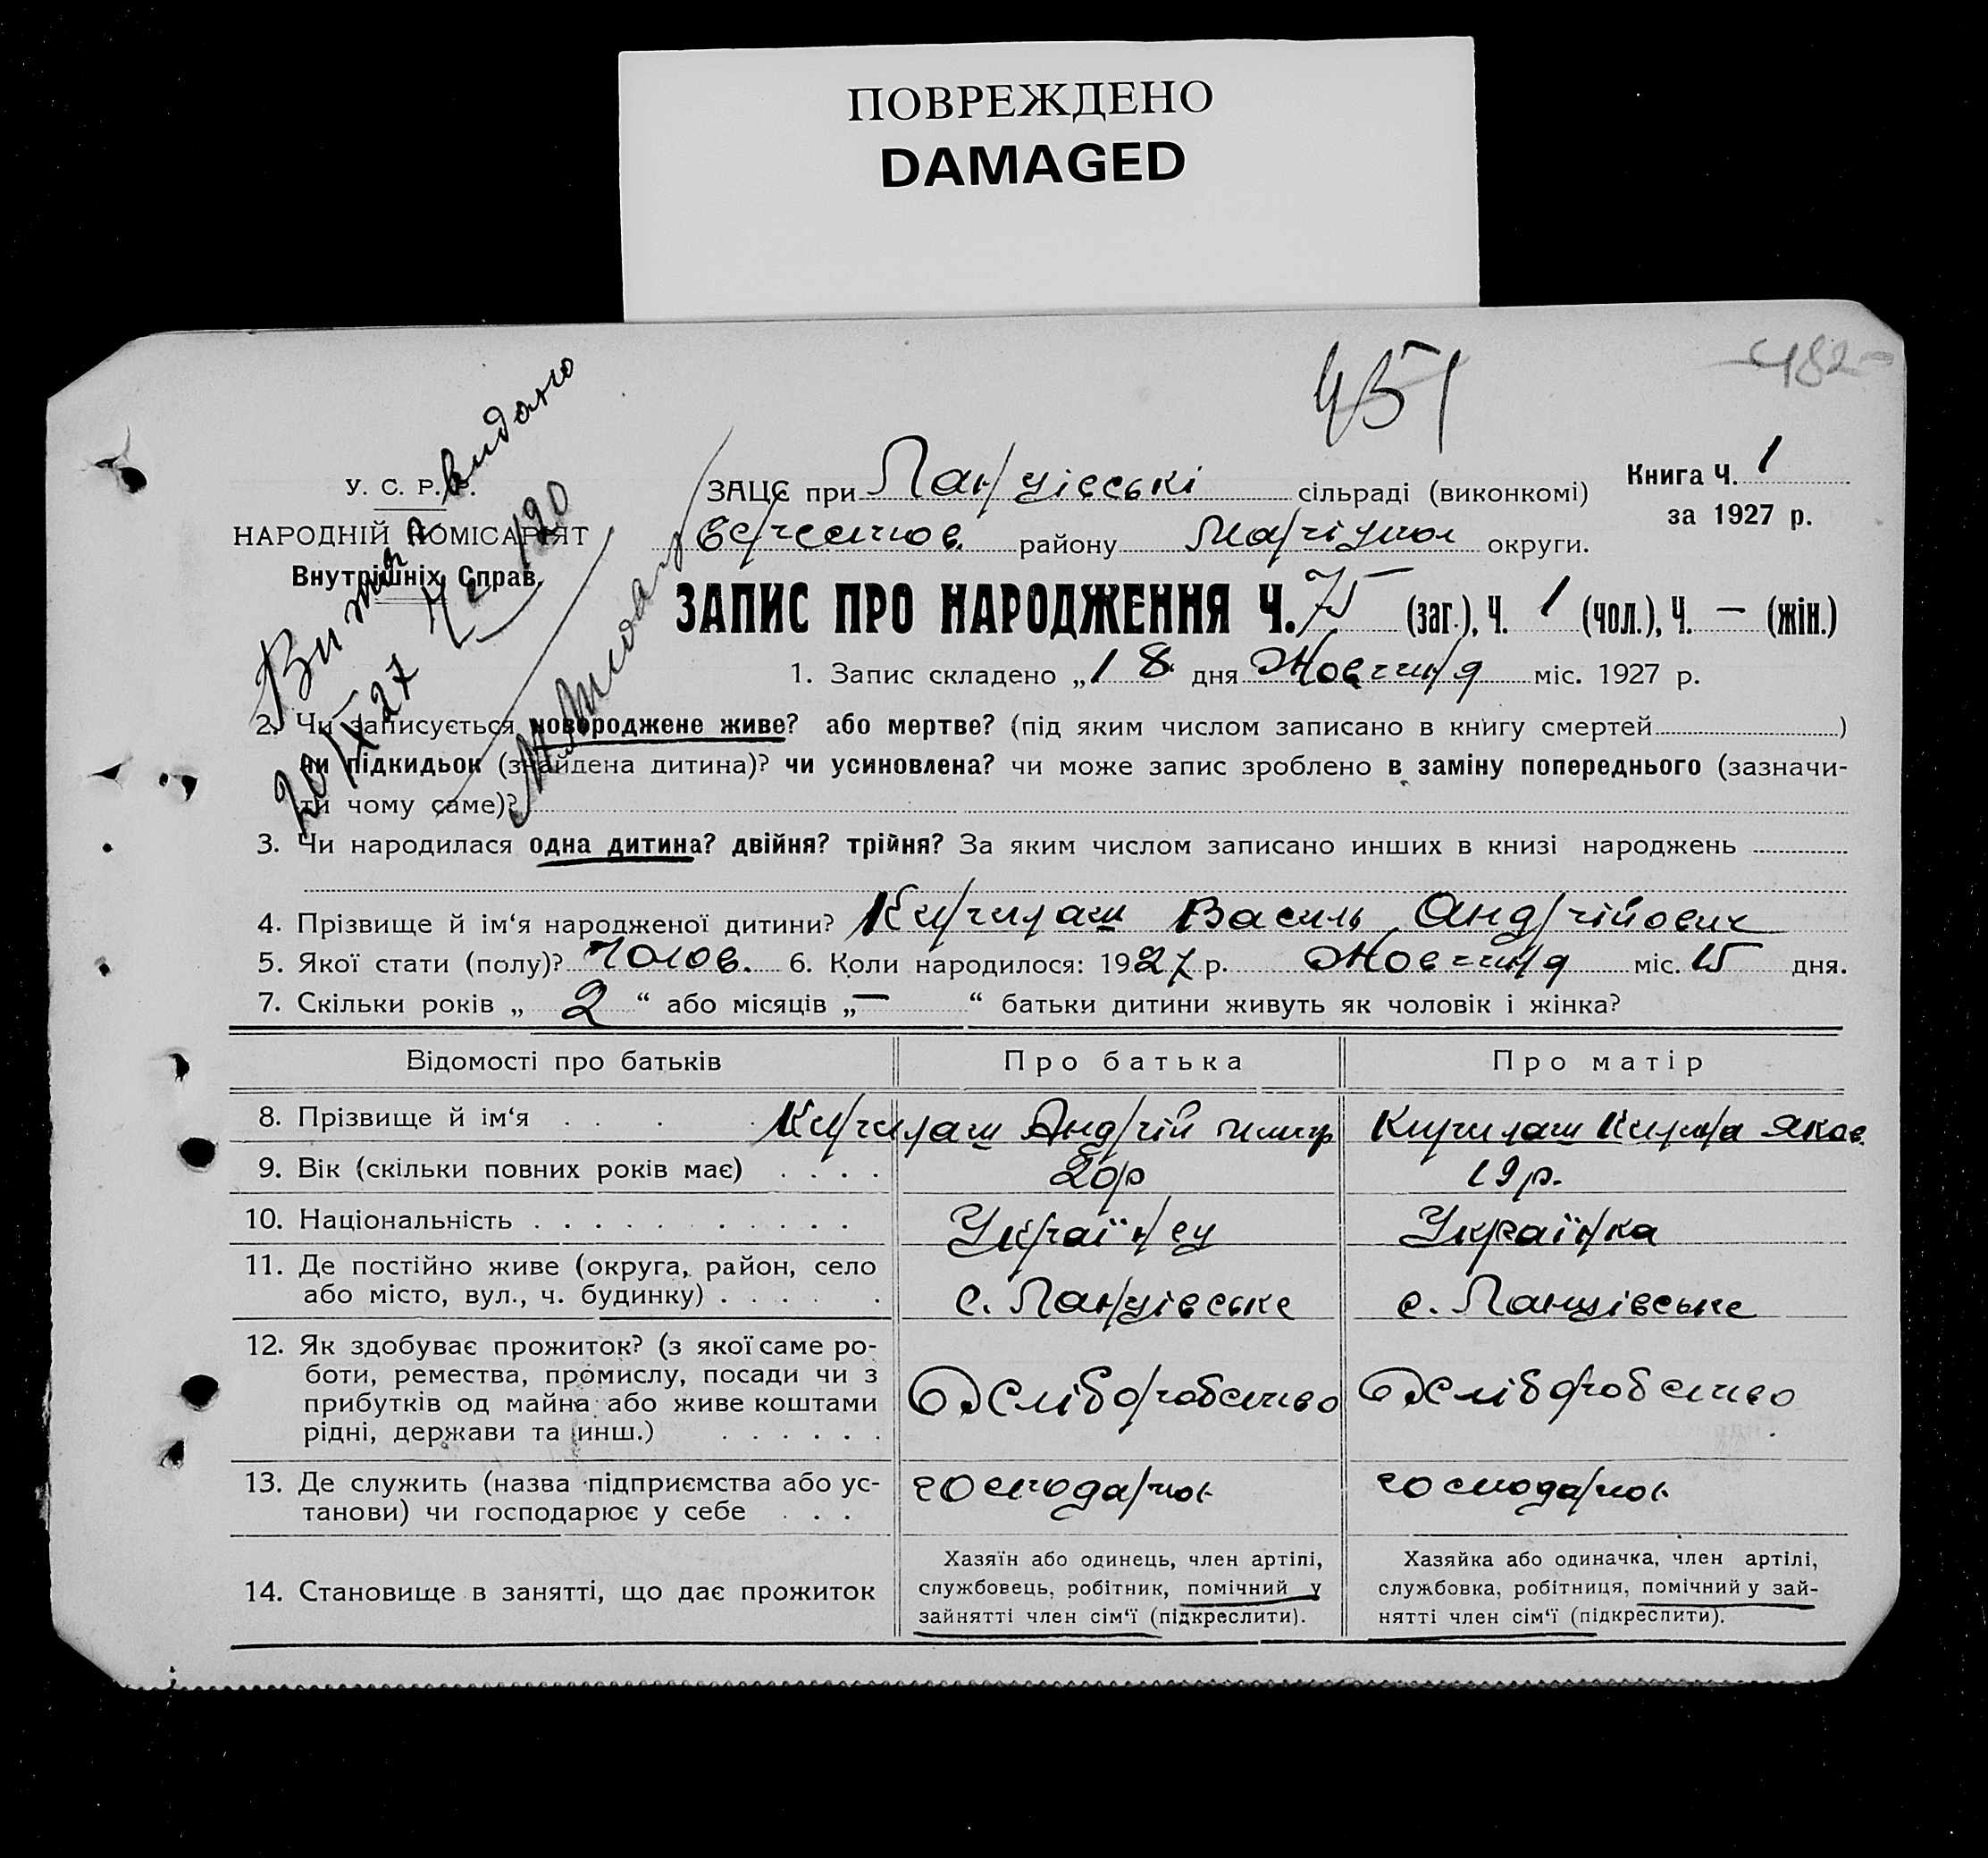 ПОВРЕЖДЕНО
DAMAGED
451
482
У. С. Р. Р.
НАРОДНІЙ КОМІСАРІЯТ
Внутрішніх Справ.
Витяг видано
20/X 27 № 120
ЗАЦС при Ланцівські сільраді (виконкомі)
району Маріупол округи.
Книга Ч. 1
за 1927 р.
ЗАПИС ПРО НАРОДЖЕННЯ Ч. 75 (заг.), Ч. 1 (чол.), Ч. — (жін.)
1. Запис складено „18 дня Жовтня міс. 1927 р.
2. Чи записується новороджене живе? або мертве? (під яким числом записано в книгу смертей )
чи підкидьок (знайдена дитина)? чи усиновлена? чи може запис зроблено в заміну попереднього (зазначи-
ти чому саме)?
3. Чи народилася одна дитина? двійня? трійня? За яким числом записано инших в книзі народжень
4. Прізвище й ім‘я народженої дитини? Кирилаш Василь Андрійович
5. Якої стати (полу)? Чолов. 6. Коли народилося: 1927 р. Жовтня міс. 15 дня.
7. Скільки років „ 2 “ або місяців „ — “ батьки дитини живуть як чоловік і жінка?
Відомості про батьків Про батька Про матір
8. Прізвище й ім‘я Кирилаш Андрій Кирилаш Яков.
9. Вік (скільки повних років має) 20р 19р.
10. Національність Українец Українка
11. Де постійно живе (округа, район, село
або місто, вул., ч. будинку) с. Ланцівське с. Ланцівське
12. Як здобуває прожиток? (з якої саме ро-
боти, ремества, промислу, посади чи з
прибутків од майна або живе коштами
рідні, держави та инш.) Хліборобство Хліборобство
13. Де служить (назва підприємства або ус-
танови) чи господарює у себе господарює господарює
14. Становище в занятті, що дає прожиток
Хазяїн або одинець, член артілі,
службовець, робітник, помічний у
зайнятті член сім‘ї (підкреслити).
Хазяйка або одиначка, член артілі,
службовка, робітниця, помічний у зай-
нятті член сім‘ї (підкреслити).